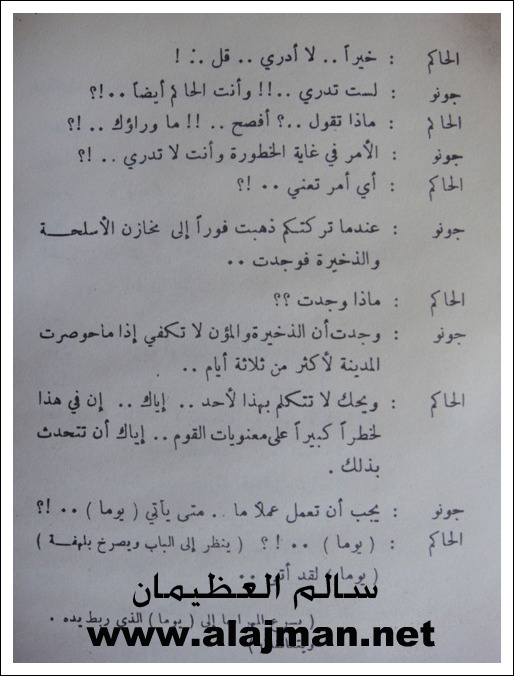 الحاكم : خيراً .. لا أدري .. قل .. !
جونو : لست تدري ..!! وأنت الحاكم أيضاً ..!؟
الحاكم : ماذا تقول ..؟ أفصح .. !! ما وراؤك .. !؟
جونو : الأمر في غاية الخطورة وأنت لا تدري .. !؟
الحاكم : أي أمر تعني .. !؟
جونو : عندما تركتكم ذهبت فوراً إلى مخازن الأسلحة
والذخيرة فوجدت ..
الحاكم : ماذا وجدت ؟؟
جونو : وجدت أن الذخيرة والمؤن لا تكفي إذا ما حوصرت
المدينة لأكثر من ثلاثة أيام ..
الحاكم : ويحك لا تتكلم بهذا لأحد .. إياك .. إن في هذا
لخطراً كبيراً على معنويات القوم .. إياك أن تتحدث
بذلك .
جونو : يجب أن تعمل عملاً ما .. متى يأتي ( يوما ) .. !؟
الحاكم : ( يوما ) .. !؟ ( ينظر إلى الباب ويصرخ بلهفة )
( يوما ) لقد أتى ..
سالم العظيمان
إلى ( يوما ) الذي ربط يده .
www.alajman.net